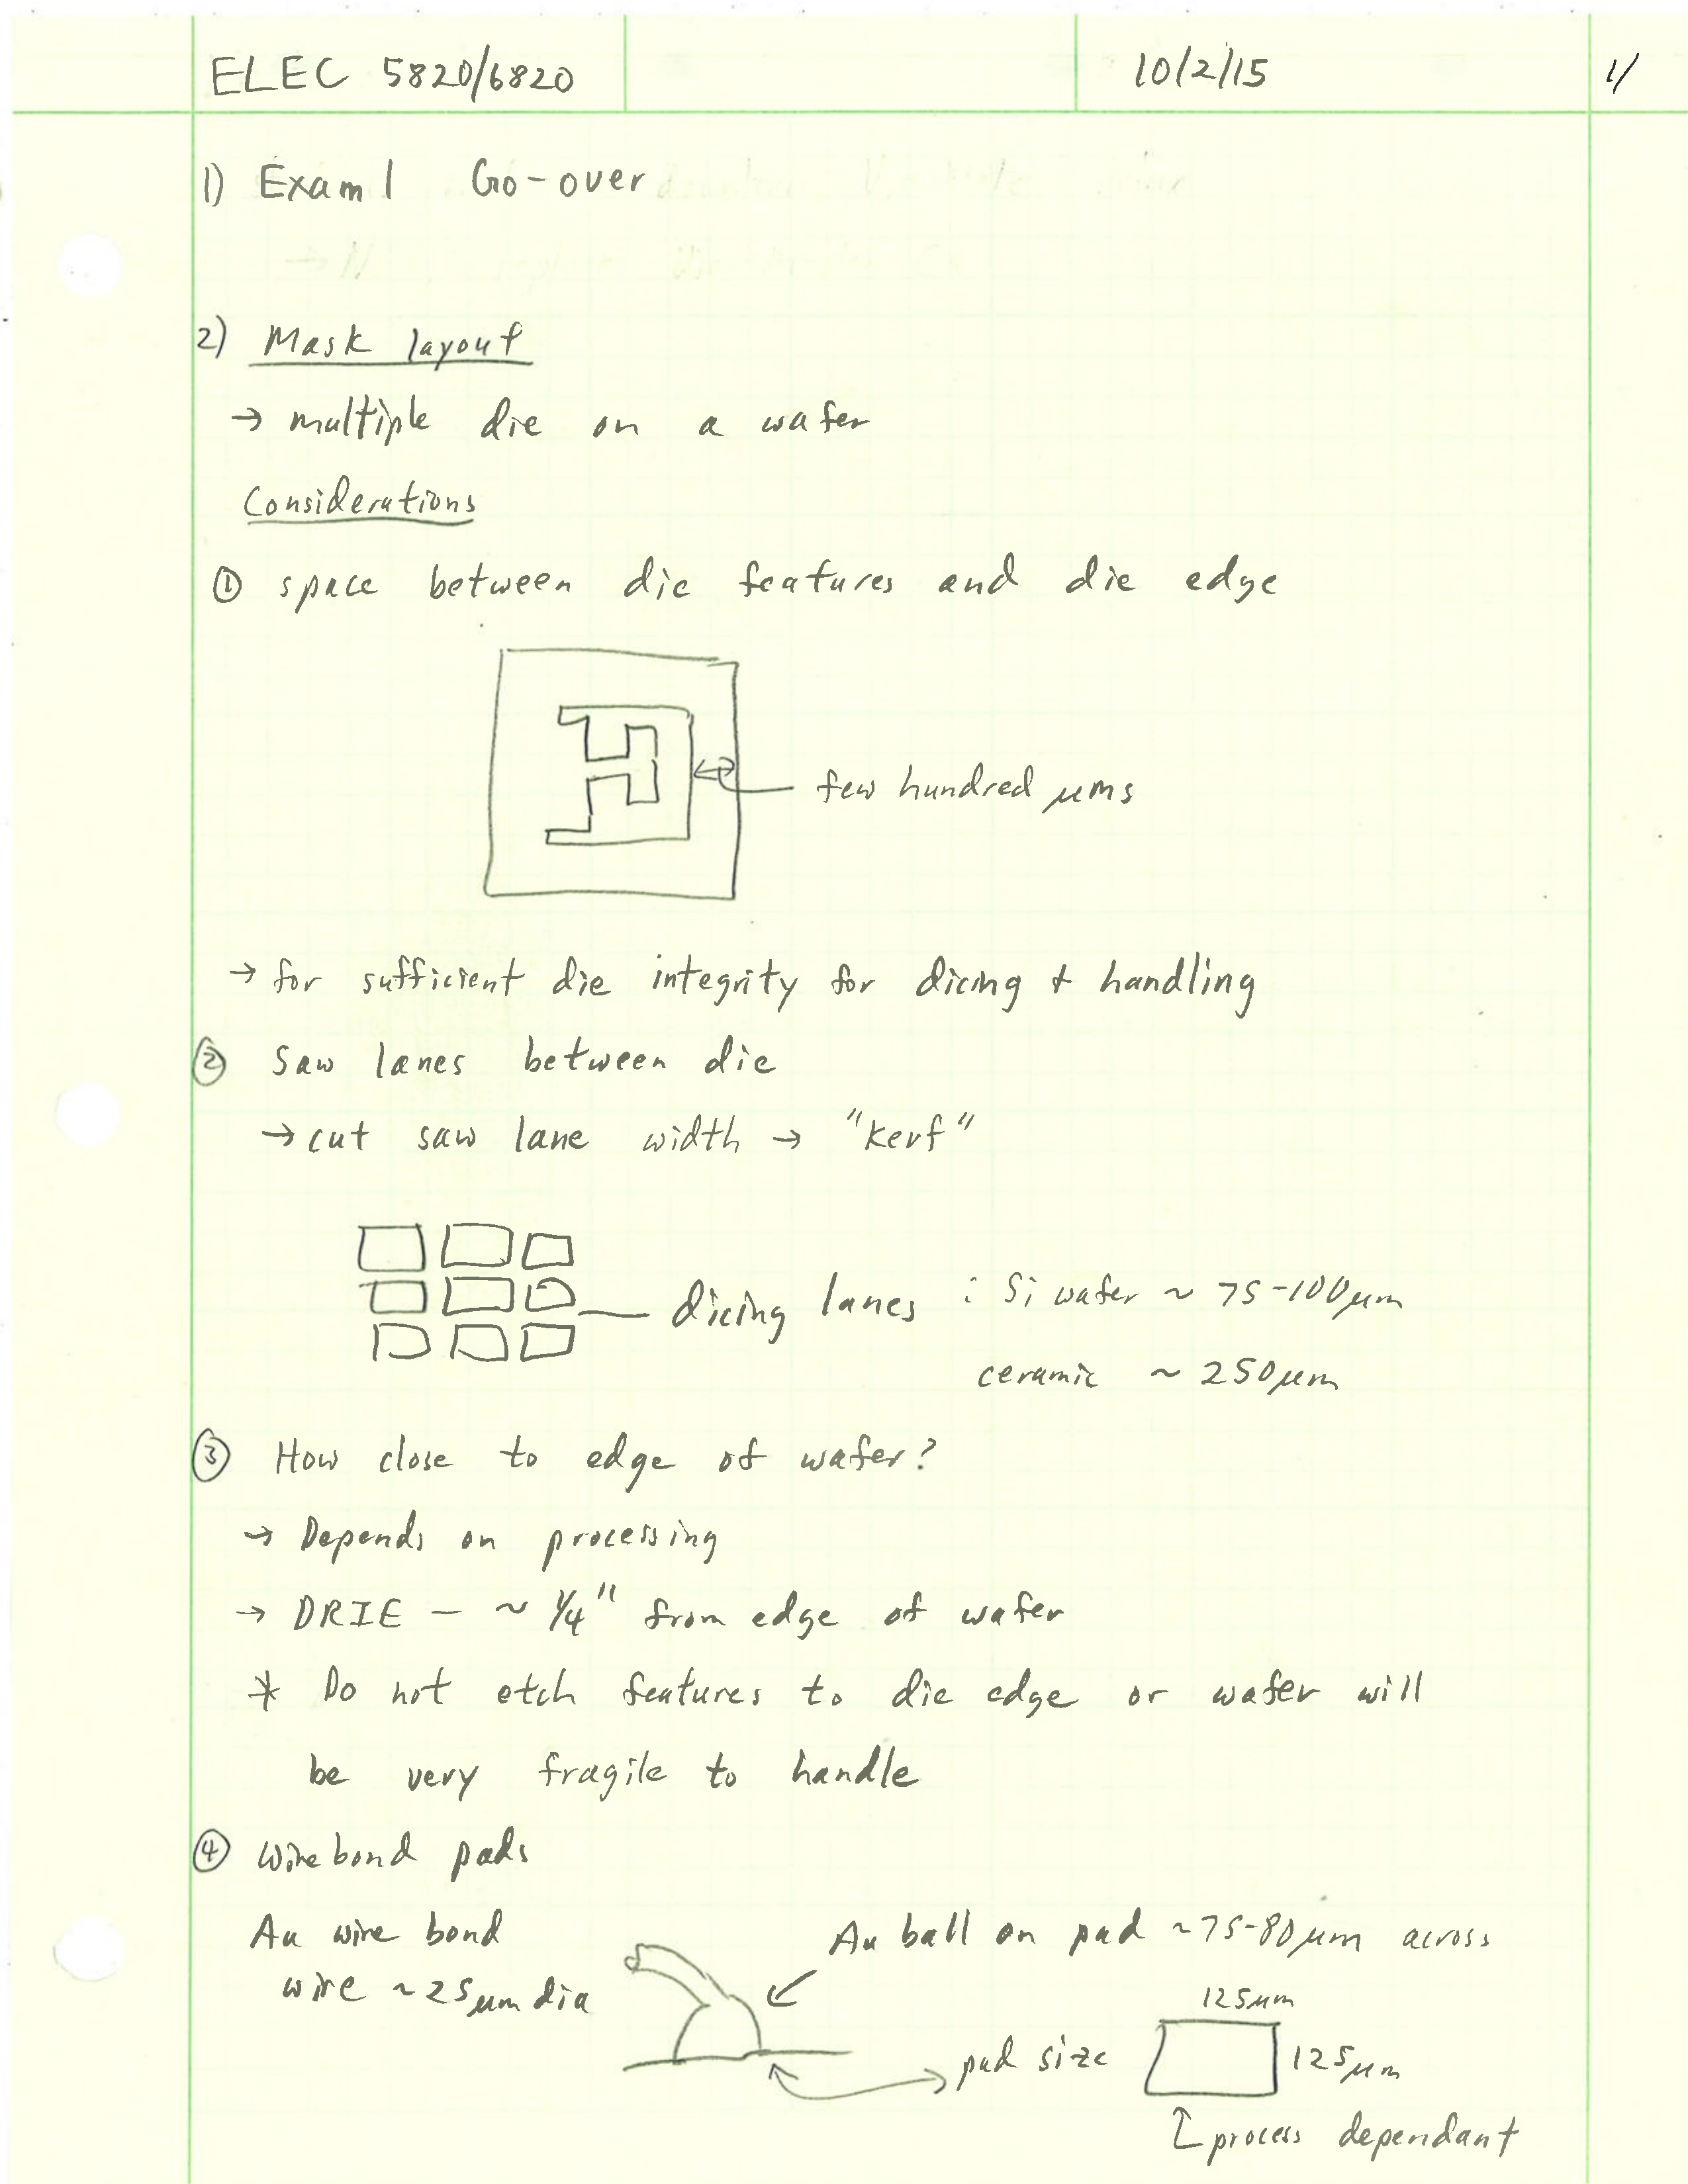 ELEC 5820/6820 10/2/15 1/
1) Exam 1 Go-over
2) Mask layout
→ multiple die on a wafer
Considerations
① space between die features and die edge
few hundred μms
→ for sufficient die integrity for dicing + handling
② Saw lanes between die
→ cut saw lane width → "Kerf"
dicing lanes : Si wafer ~ 75-100μm
ceramic ~ 250μm
③ How close to edge of wafer?
→ Depends on processing
→ DRIE - ~ 1/4" from edge of wafer
* Do not etch features to die edge or wafer will
be very fragile to handle
④ Wirebond pads
Au wire bond
wire ~25μm dia
Au ball on pad ~75-80μm across
125μm
pad size
125μm
process dependant